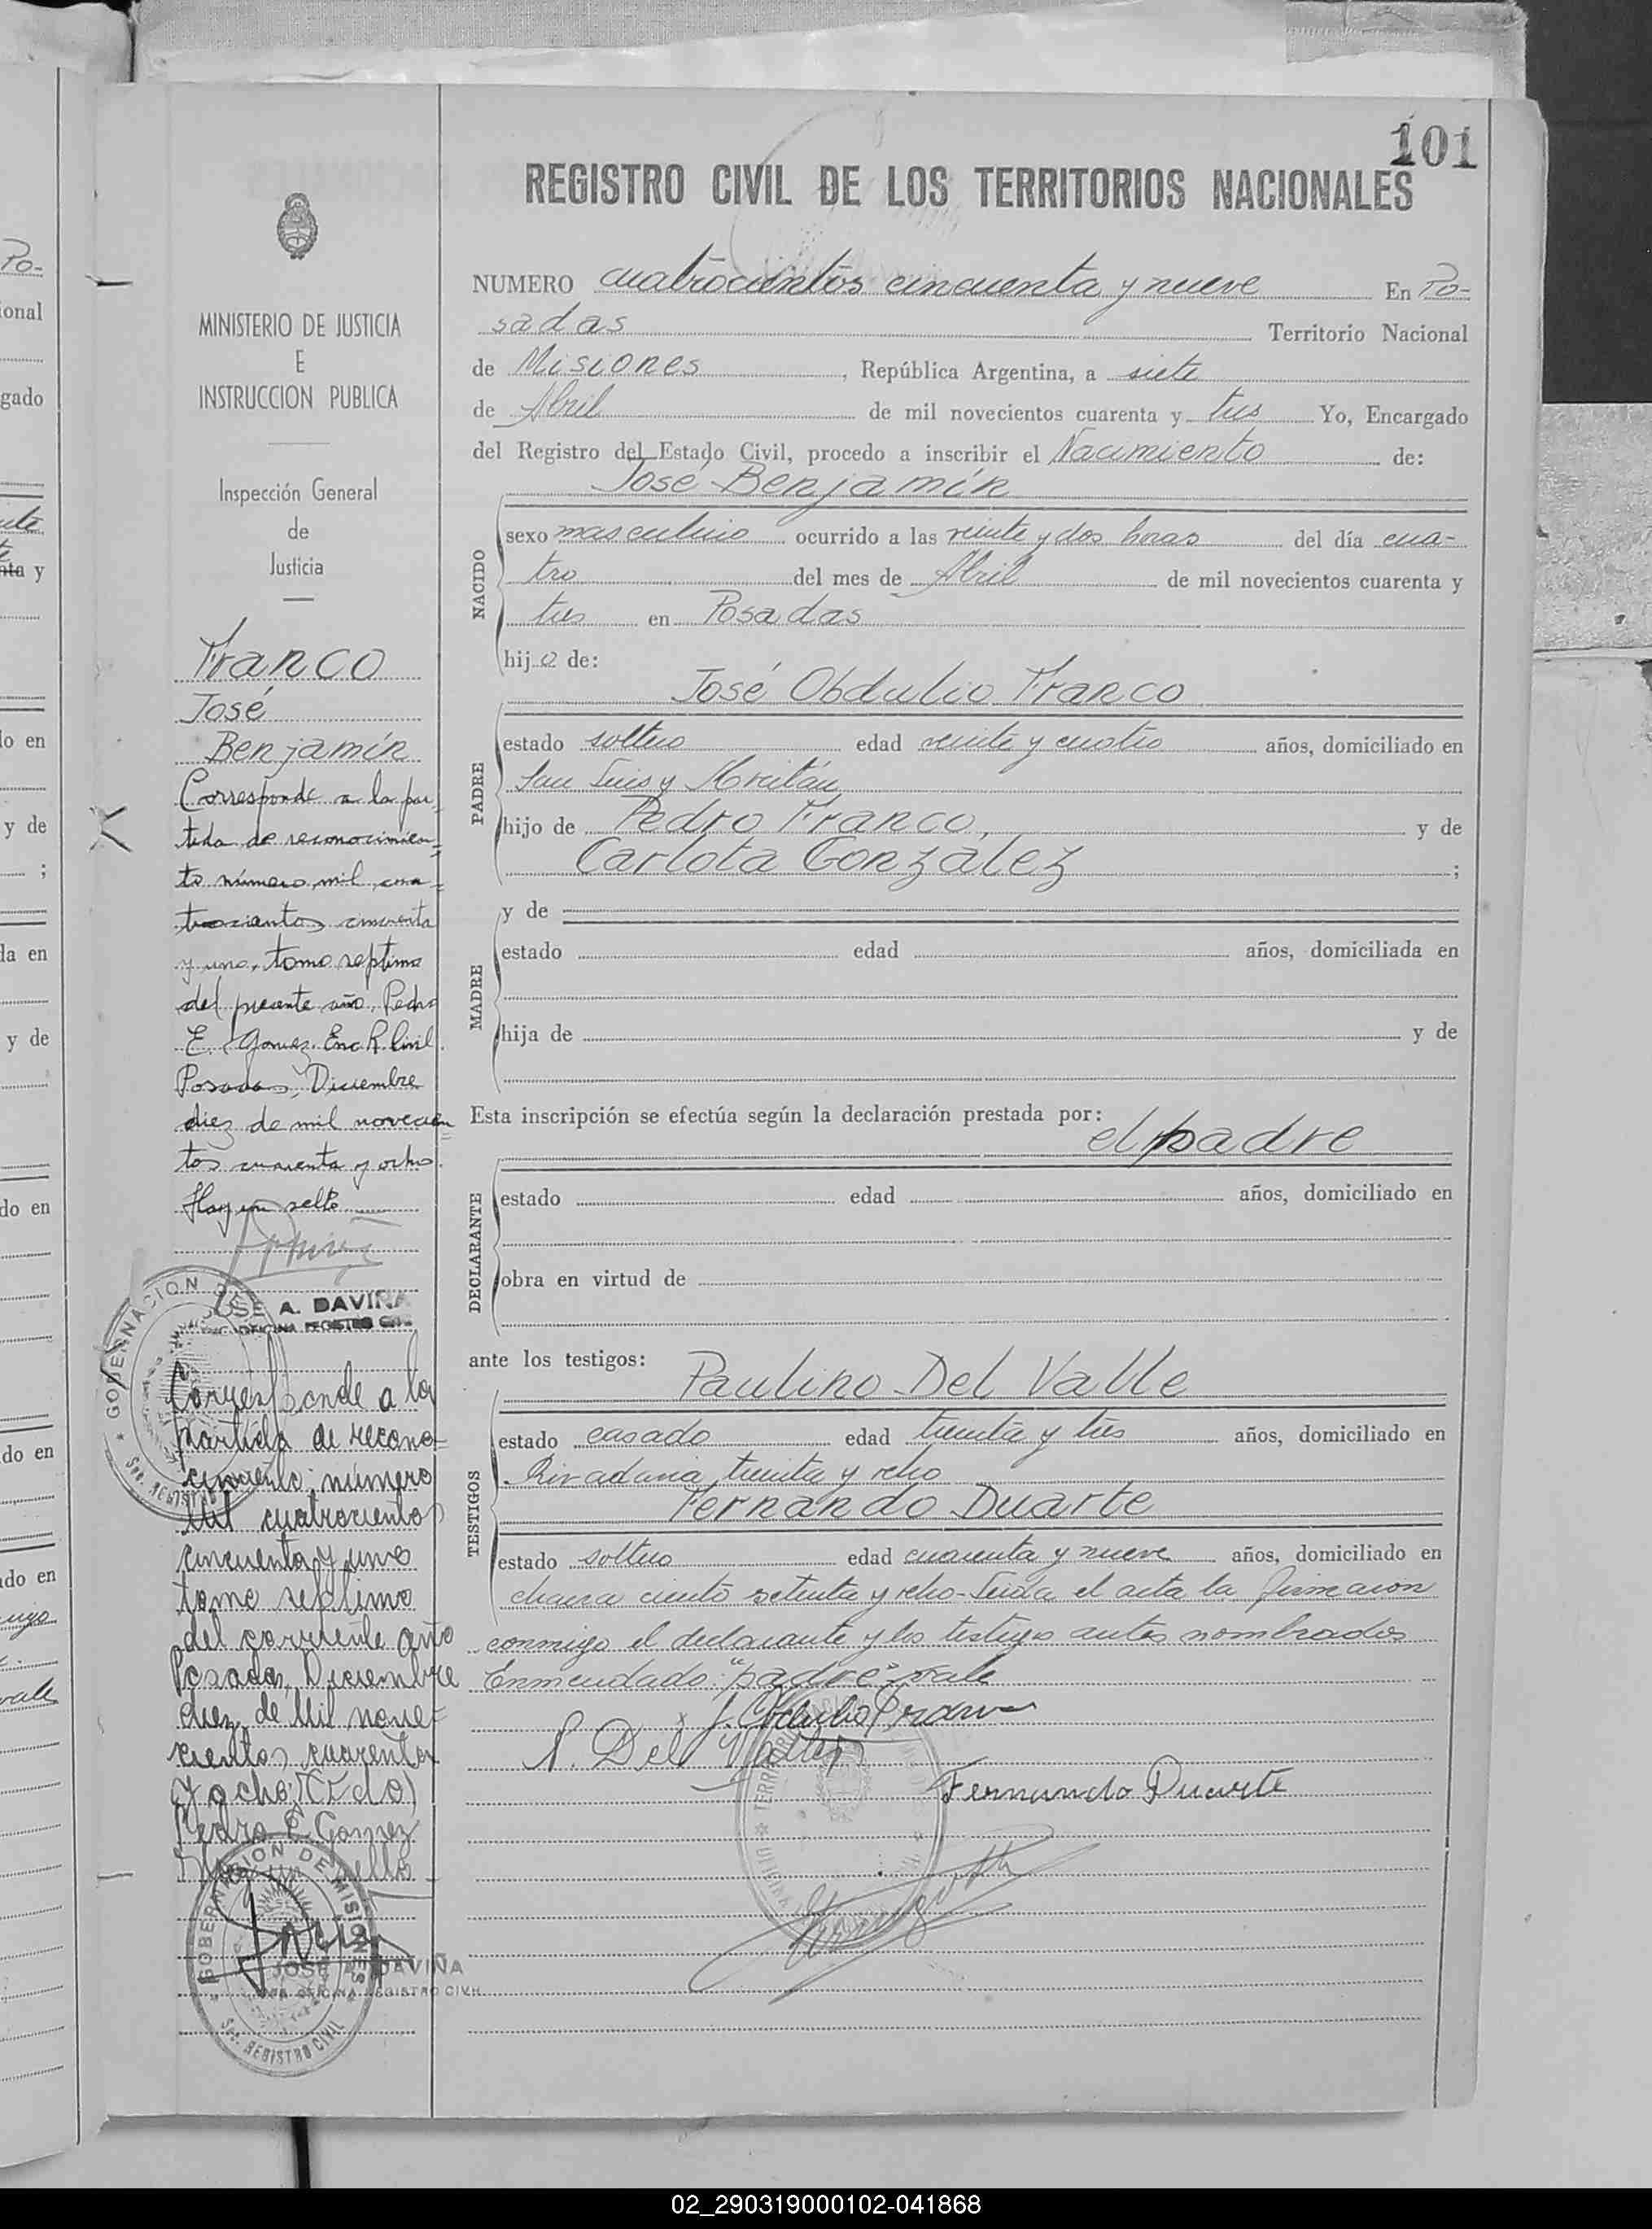 101
REGISTRO CIVIL DE LOS TERRITORIOS NACIONALES
NUMERO cuatrocientos cincuenta y nueve En Po-
sadas Territorio Nacional
de Misiones, República Argentina, a siete
de Abril de mil novecientos cuarenta y tres Yo, Encargado
del Registro del Estado Civil, procedo a inscribir el Nacimiento de:
José Benjamín
NACIDO
sexo masculino ocurrido a las veinte y dos horas del día cua-
tro del mes de Abril de mil novecientos cuarenta y
tres en Posadas
hijo de:
José Obdulio Franco
PADRE
estado soltero edad veinte y cuatro años, domiciliado en
San Luis y
hijo de Pedro Franco, y de
Carlota González ;
MADRE
y de
estado edad años, domiciliada en
hija de y de
Esta inscripción se efectúa según la declaración prestada por:
el padre
DECLARANTE
estado edad años, domiciliado en
obra en virtud de
ante los testigos:
Paulino Del Valle
TESTIGOS
estado casado edad treinta y tres años, domiciliado en
Rivadavia treinta y ocho
Fernando Duarte
estado soltero edad cuarenta y nueve años, domiciliado en
chacra ciento setenta y ocho- Leída el acta la firmaron
conmigo el declarante y los testigos antes nombrados
Enmendado: "padre" vale
J. Obdulio Franco
P. Del Valle
Fernando Duarte
MINISTERIO DE JUSTICIA
E
INSTRUCCION PUBLICA
Inspección General
de
Justicia
Franco
José
Benjamín
Corresponde a la par
tida de reconocimien
to número mil cua-
trocientos cincuenta
y uno, tomo septimo
del presente año, Pedro
E. Gomez. Enc R. Civil.
Posadas, Diciembre
diez de mil novecien
tos cuarenta y ocho.
Hay un sello
GOBERNACION DE
JOSE A. DAVIÑA
OFICINA REGISTRO CIVIL
Corresponde a la
partida de recono-
cimiento número
Mil cuatrocientos
cincuenta y uno
tomo septimo
del corriente año
Posadas, Diciembre
diez de Mil nove-
cientos cuarenta
y ocho. (Fdo)
Pedro E. Gomez
Hay un sello
GOBERNACION DE MISIONES
JOSE A. DAVIÑA
OFICINA REGISTRO CIVIL
Sec. REGISTRO CIVIL
02_290319000102-041868